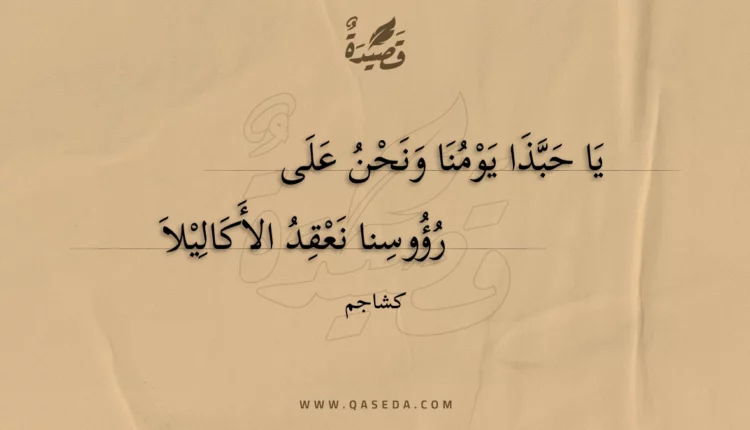 قَصِيْدَةٌ
يَا حَبَّذَا يَوْمُنَا وَنَحْنُ عَلَى
رُؤُوسِنا نَعْقِدُ الأَكَالِيْلاَ
كشاجم
WWW.QASEDA.COM